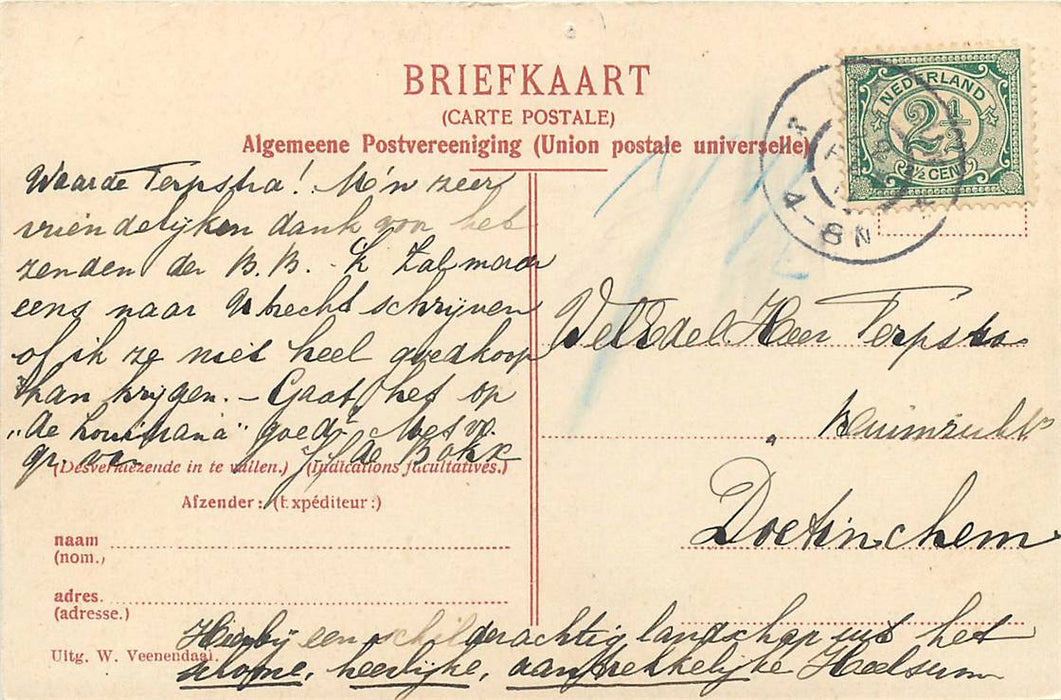 BRIEFKAART
(CARTE POSTALE)
Algemeene Postvereeniging (Union postale universelle)
NEDERLAND
2½
2½ CENT
4-8N
Waarde Terpstra! M'n zeer
vriendelijken dank voor het
zenden der B.B. 'k Zal maar
eens naar Utrecht schrijven
of ik ze niet heel goedkoop
kan krijgen. – Gaat het op
"de Louisiana" goed? Met vr.
gr. 
(Desverkiezende in te vullen.) (Indications facultatives.)
Afzender: (Expéditeur:)
naam
(nom.)
adres.
(adresse.)
WelEdel Heer Terpstra
Doetinchem
Hierbij een schilderachtig landschap uit het
heerlijke, aantrekkelijke Heelsum
Uitg. W. Veenendaal.